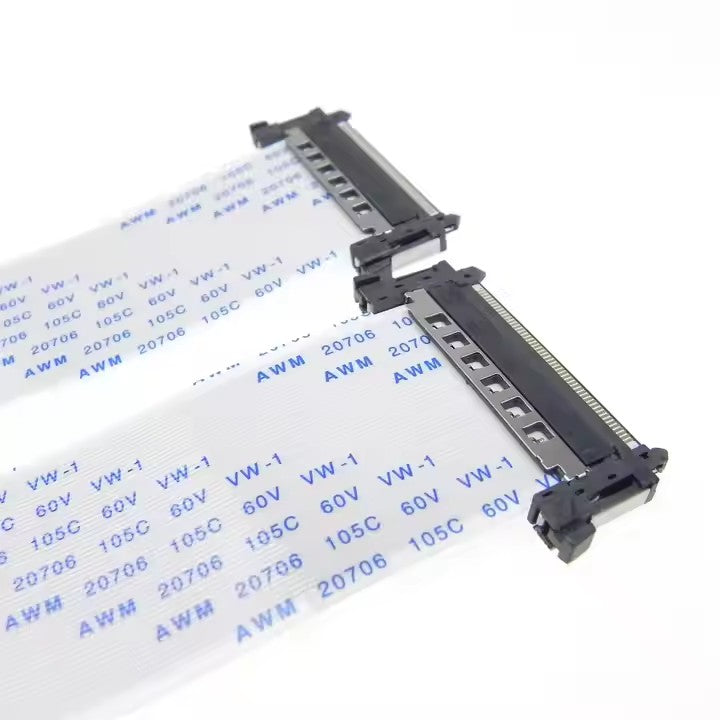 AWM 20706 105C
AWM 20706
AWM
VW-1 VW-1 VW-1 VW-1 VW-1
60V 60V 60V 60V 60V
105C 105C 105C 105C
AWM 20706 20706 20706 105C 60V
AWM AWM 20706 105C 60V
AWM 20706
AWM 20706
AWM 20706
AWM
VW-1 VW-1 VW-1 VW-1 VW-1 VW-1
60V 60V 60V 60V 60V 60V
105C 105C 105C 105C 105C 105C
20706 20706 20706 20706 20706
AWM AWM AWM AWM